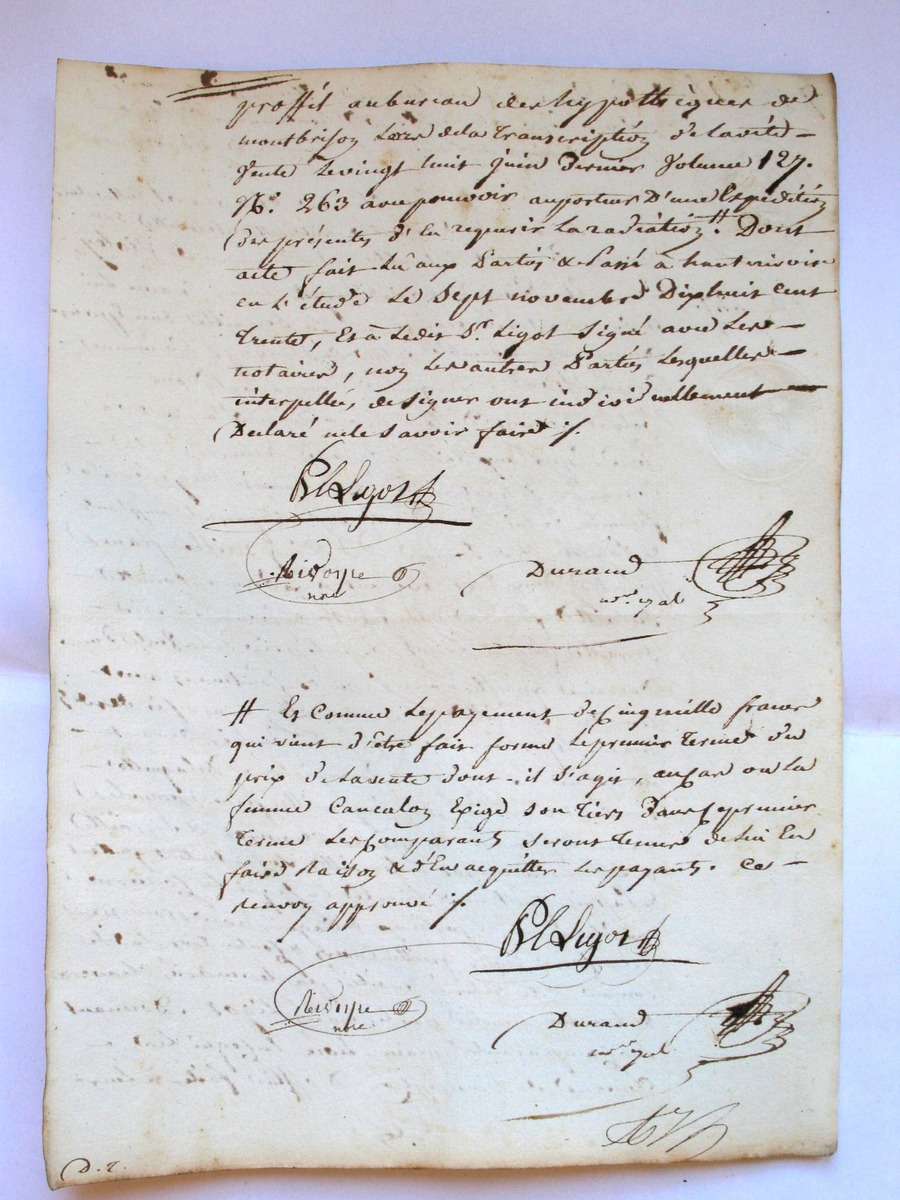 proffit au bureau des hyppothèques de
montbrison Lors de la transcription de la dite
Vente Le vingt huit juin dernier Volume 127.
No. 263 avec pouvoir au porteur D'une Expédition
des présentes d'En requerir La radiation. # Dont
acte fait Lu aux Parties & Passé à
en L'étude Le Sept novembre Dix huit cent
trente, Et à Ledit Sr. Ligot Signé avec Les
notaires, non Les autres Parties Lesquelles
interpellées de Signer ont individuellement
Déclaré ne le Savoir faire ./.
Ligot
nre
Durand
# Et Comme Le payement de Cinq mille francs
qui vient d'être fait forme Le premier terme du
prix de La vente dont il S'agit, au Cas ou La
femme Cancalon Exige Son tiers Dans Ce premier
terme Les Comparants Seront tenus de lui En
faire Raison & d'En acquitter Les payants. Ce
Renvoy approuvé ./.
Ligot
nre
Durand
D. R.